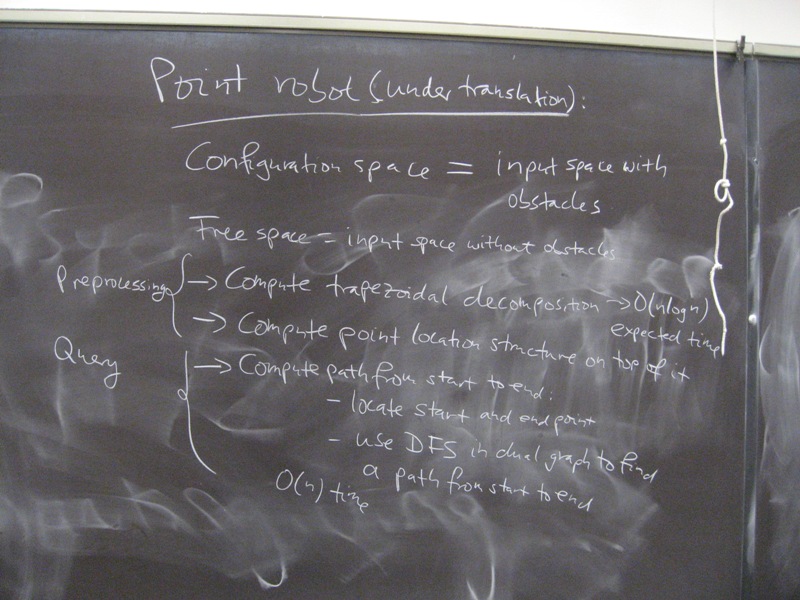 Point robot (under translation):
Configuration space = input space with
obstacles
Free space = input space without obstacles
Preprocessing → Compute trapezoidal decomposition → O(n log n)
expected time
→ Compute point location structure on top of it
Query → Compute path from start to end:
- locate start and endpoint
- use DFS in dual graph to find
a path from start to end
O(n) time